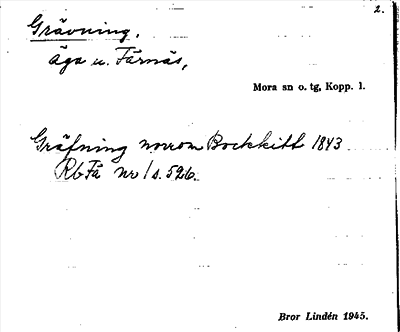 2.
Grävning.
Äga u. Färnäs,
Mora sn o. tg, Kopp. l.
Gräfning norrom Bockkitt 1843
RbFä nr 1 s. 526.
Bror Lindén 1945.